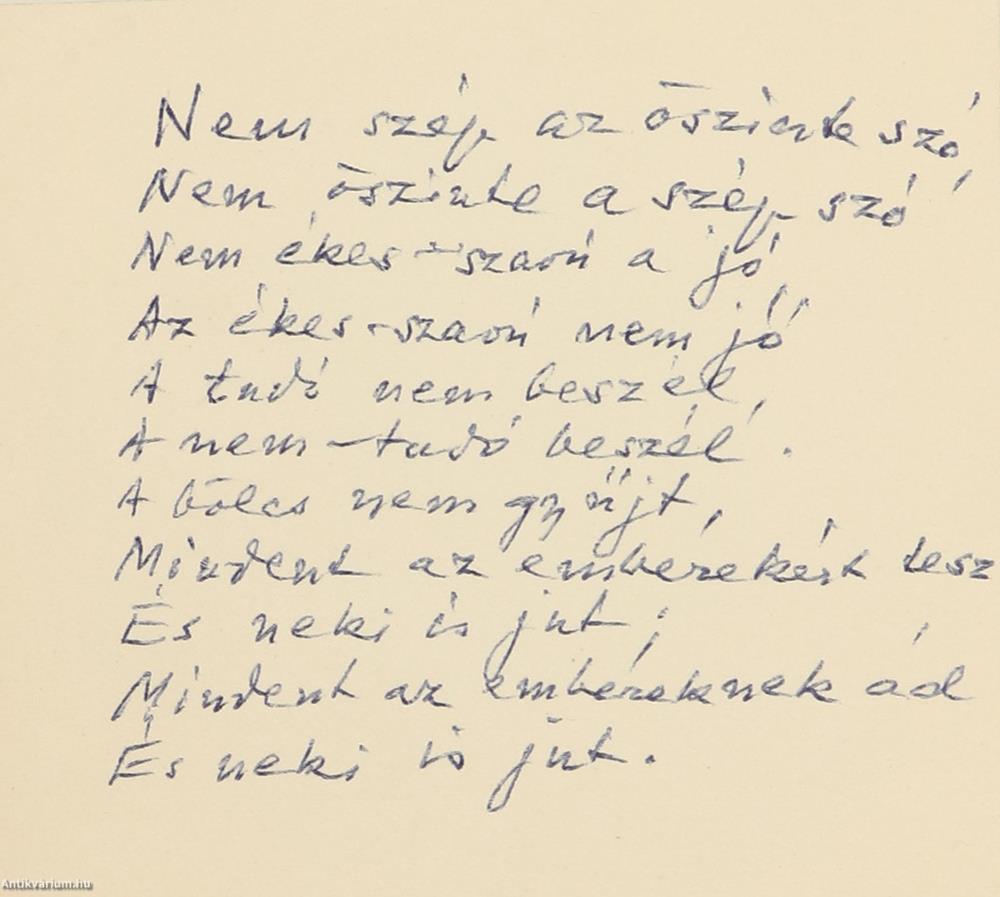 Nem szép az őszinte szó,
Nem őszinte a szép szó
Nem ékes-szavú a jó,
Az ékes-szavú nem jó
A tudó nem beszél,
A nem-tudó beszél.
A bölcs nem gyűjt,
Mindent az emberekért tesz
És neki is jut;
Mindent az embereknek ád
És neki is jut.
Antikvárium.hu